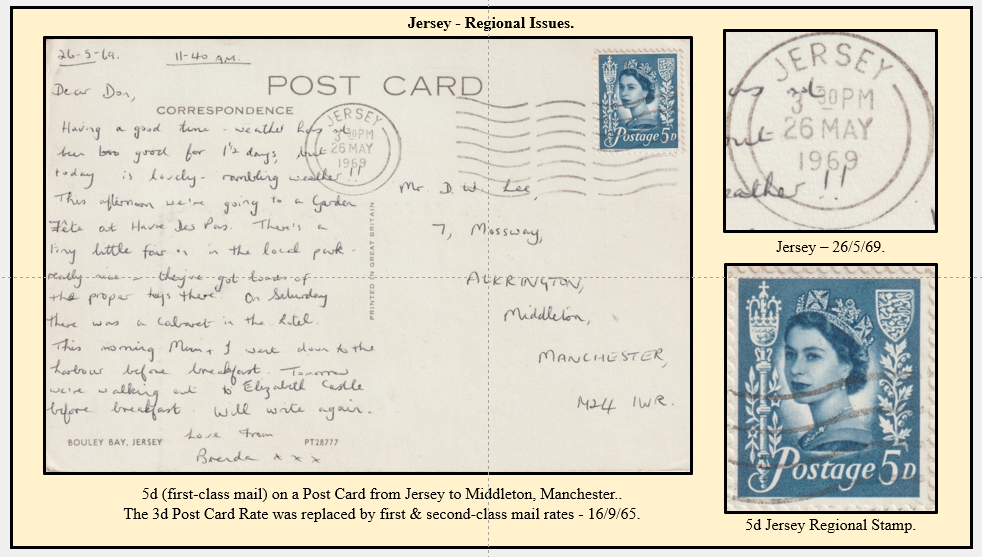 Jersey - Regional Issues.
26-5-69.
11-40 A.M.
POST CARD
CORRESPONDENCE
Dear Don,
Having a good time - weather has
been too good for 1½ days, but
today is lovely - rambling weather!!
This afternoon we're going to a Garden
Fête at Havre Des Pas. There's a
tiny little fair on in the local park -
really nice - they've got loads of
the proper toys there. On Saturday
there was a Cabaret in the Hotel.
This morning Mum + I went down to the
harbour before breakfast. Tomorrow
we're walking out to Elizabeth Castle
before breakfast. Will write again.
Love from
Brenda x x x
BOULEY BAY, JERSEY
PT28777
PRINTED IN GREAT BRITAIN
JERSEY
30PM
26 MAY
1969
Postage 5D
Mr. D. W. Lee,
7, Mossway,
ALKRINGTON,
Middleton,
MANCHESTER,
M24 1WR.
5d (first-class mail) on a Post Card from Jersey to Middleton, Manchester..
The 3d Post Card Rate was replaced by first & second-class mail rates - 16/9/65.
JERSEY
30PM
26 MAY
1969
eather !!
Jersey – 26/5/69.
Postage 5D
5d Jersey Regional Stamp.